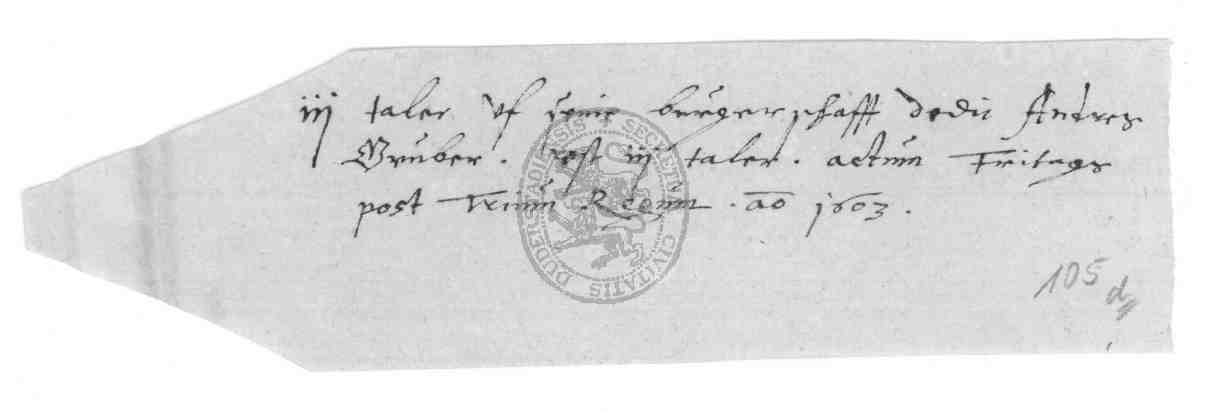 iij taler vf seine burgerschafft dedit Andres
Gruber. rest iij taler. actum Fritags
post Trium Regum. ao 1603.
SECRETUM CIVITATIS DUDERSTADIENSIS
105